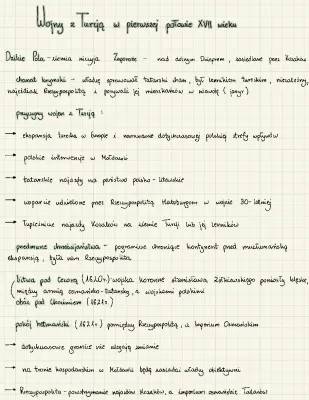 Wojny z Turcją w pierwszej połowie XVII wieku
Dzikie Pola - ziemia niczyja Zaporoże - nad dolnym Dnieprem, zasiedlone przez Kozaków
chanat krymski - władzę sprawował tatarski chan, był lennikiem tureckim, niezależny,
najeżdżał Rzeczpospolitą i porywali jej mieszkańców w niewolę ( jasyr )
przyczyny wojen z Turcją :
→ ekspansja turecka w Europie i naruszanie dotychczasowej polskiej strefy wpływów
→ polskie interwencje w Mołdawii
→ tatarskie najazdy na państwo polsko - litewskie
→ wsparcie udzielone przez Rzeczpospolitą Habsburgom w wojnie 30-letniej
→ łupieżnicze najazdy Kozaków na ziemie Turcji lub jej lenników
przedmurze chrześcijaństwa - pogranicze chroniące kontynent przed muzułmańską
ekspansją, była nim Rzeczpospolita
bitwa pod Cecorą (1620r) wojska koronne Stanisława Żółkiewskiego poniosły klęskę,
między armią osmańsko-tatarską, a wojskami polskimi
obóz pod Chocimiem (1621r.)
pokój hetmański (1621r.) pomiędzy Rzeczpospolitą, a Imperium Osmańskim
→ dotychczasowe granice nie ulegają zmianie
→ na tronie hospodarskim w Mołdawii będą zasiadać władcy obiektywni
→ Rzeczpospolita - powstrzymanie najazdów Kozaków, a imperium osmańskie Tatarów